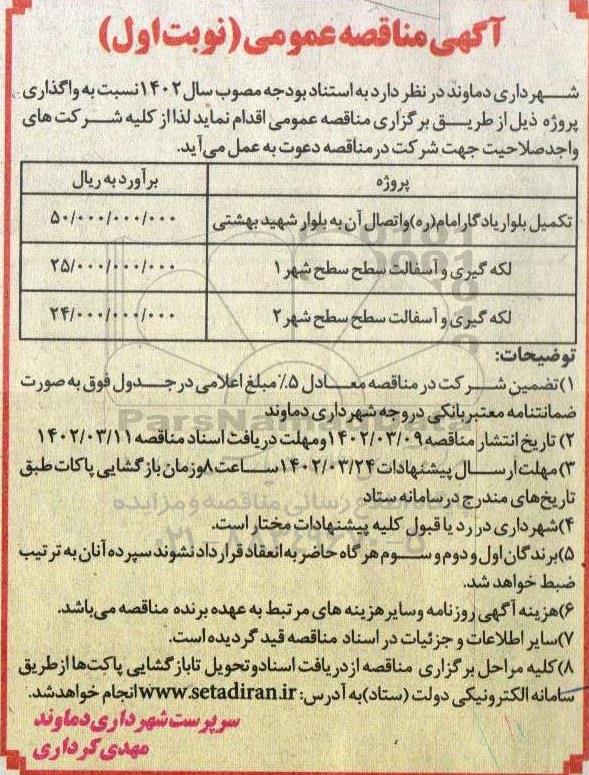 آگهی مناقصه عمومی (نوبت اول)
شهرداری دماوند در نظر دارد به استناد بودجه مصوب سال ۱۴۰۲ نسبت به واگذاری
پروژه ذیل از طریق برگزاری مناقصه عمومی اقدام نماید لذا از کلیه شرکت های
واجد صلاحیت جهت شرکت در مناقصه دعوت به عمل می آید.
پروژه برآورد به ریال
تکمیل بلوار یادگار امام (ره) و اتصال آن به بلوار شهید بهشتی ۵۰/۰۰۰/۰۰۰/۰۰۰
لکه گیری و آسفالت سطح سطح شهر ۱ ۲۵/۰۰۰/۰۰۰/۰۰۰
لکه گیری و آسفالت سطح سطح شهر ۲ ۲۴/۰۰۰/۰۰۰/۰۰۰
توضیحات:
۱) تضمین شرکت در مناقصه معادل ۵٪ مبلغ اعلامی در جدول فوق به صورت
ضمانتنامه معتبر بانکی در وجه شهرداری دماوند
۲) تاریخ انتشار مناقصه ۱۴۰۲/۰۳/۰۹ و مهلت دریافت اسناد مناقصه ۱۴۰۲/۰۳/۱۱
۳) مهلت ارسال پیشنهادات ۱۴۰۲/۰۳/۲۴ ساعت ۸ و زمان بازگشایی پاکات طبق
تاریخ های مندرج در سامانه ستاد
۴) شهرداری در رد یا قبول کلیه پیشنهادات مختار است.
۵) برندگان اول و دوم و سوم هرگاه حاضر به انعقاد قرارداد نشوند سپرده آنان به ترتیب
ضبط خواهد شد.
۶) هزینه آگهی روزنامه و سایر هزینه های مرتبط به عهده برنده مناقصه می باشد.
۷) سایر اطلاعات و جزئیات در اسناد مناقصه قید گردیده است.
۸) کلیه مراحل برگزاری مناقصه از دریافت اسناد و تحویل تا بازگشایی پاکت ها از طریق
سامانه الکترونیکی دولت (ستاد) به آدرس: www.setadiran.ir انجام خواهد شد.
سرپرست شهرداری دماوند
مهدی کرداری